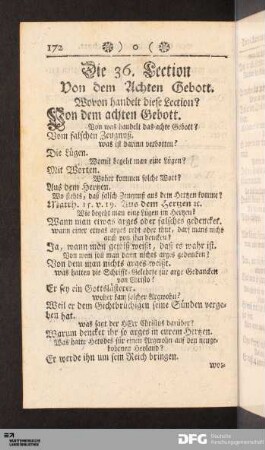 172
Die 36. Lection
Von dem Achten Gebott.
Wovon handelt diese Lection?
Von dem achten Gebott.
Von weß handelt das achte Gebott?
Vom falschen Zeugnuß.
was ist darinn verbotten?
Die Lügen.
Womit begeht man eine Lügen?
Mit Worten.
Woher kommen solche Wort?
Aus dem Hertzen.
Wo stehts, daß falsch Zeugnuß aus dem Hertzen komme?
Matth. 15. v. 19. Aus dem Hertzen ꝛc.
Wie begeht man eine Lügen im Hertzen?
Wann man etwas arges oder falsches gedencket.
wann einer etwas arges redt oder thut, darf mans nicht
auch von ihm dencken?
Ja, wann man gewiß weist, daß es wahr ist.
Von wem soll man dann nichts arges gedencken?
Von dem man nichts arges weist.
was hatten die Schrifft-Gelehrte für arge Gedancken
von Christo?
Er sey ein Gottslästerer.
woher kam solcher Argwohn?
Weil er dem Gichtbrüchigen seine Sünden vergeben
hat.
was sagt der HErr Christus darüber?
Warum dencket ihr so arges in eurem Hertzen.
Was hatte Herodes für einen Argwohn auf den neugebohrnen
Heyland?
Er werde ihn um sein Reich bringen.
wo-
DFG Deutsche
Forschungsgemeinschaft